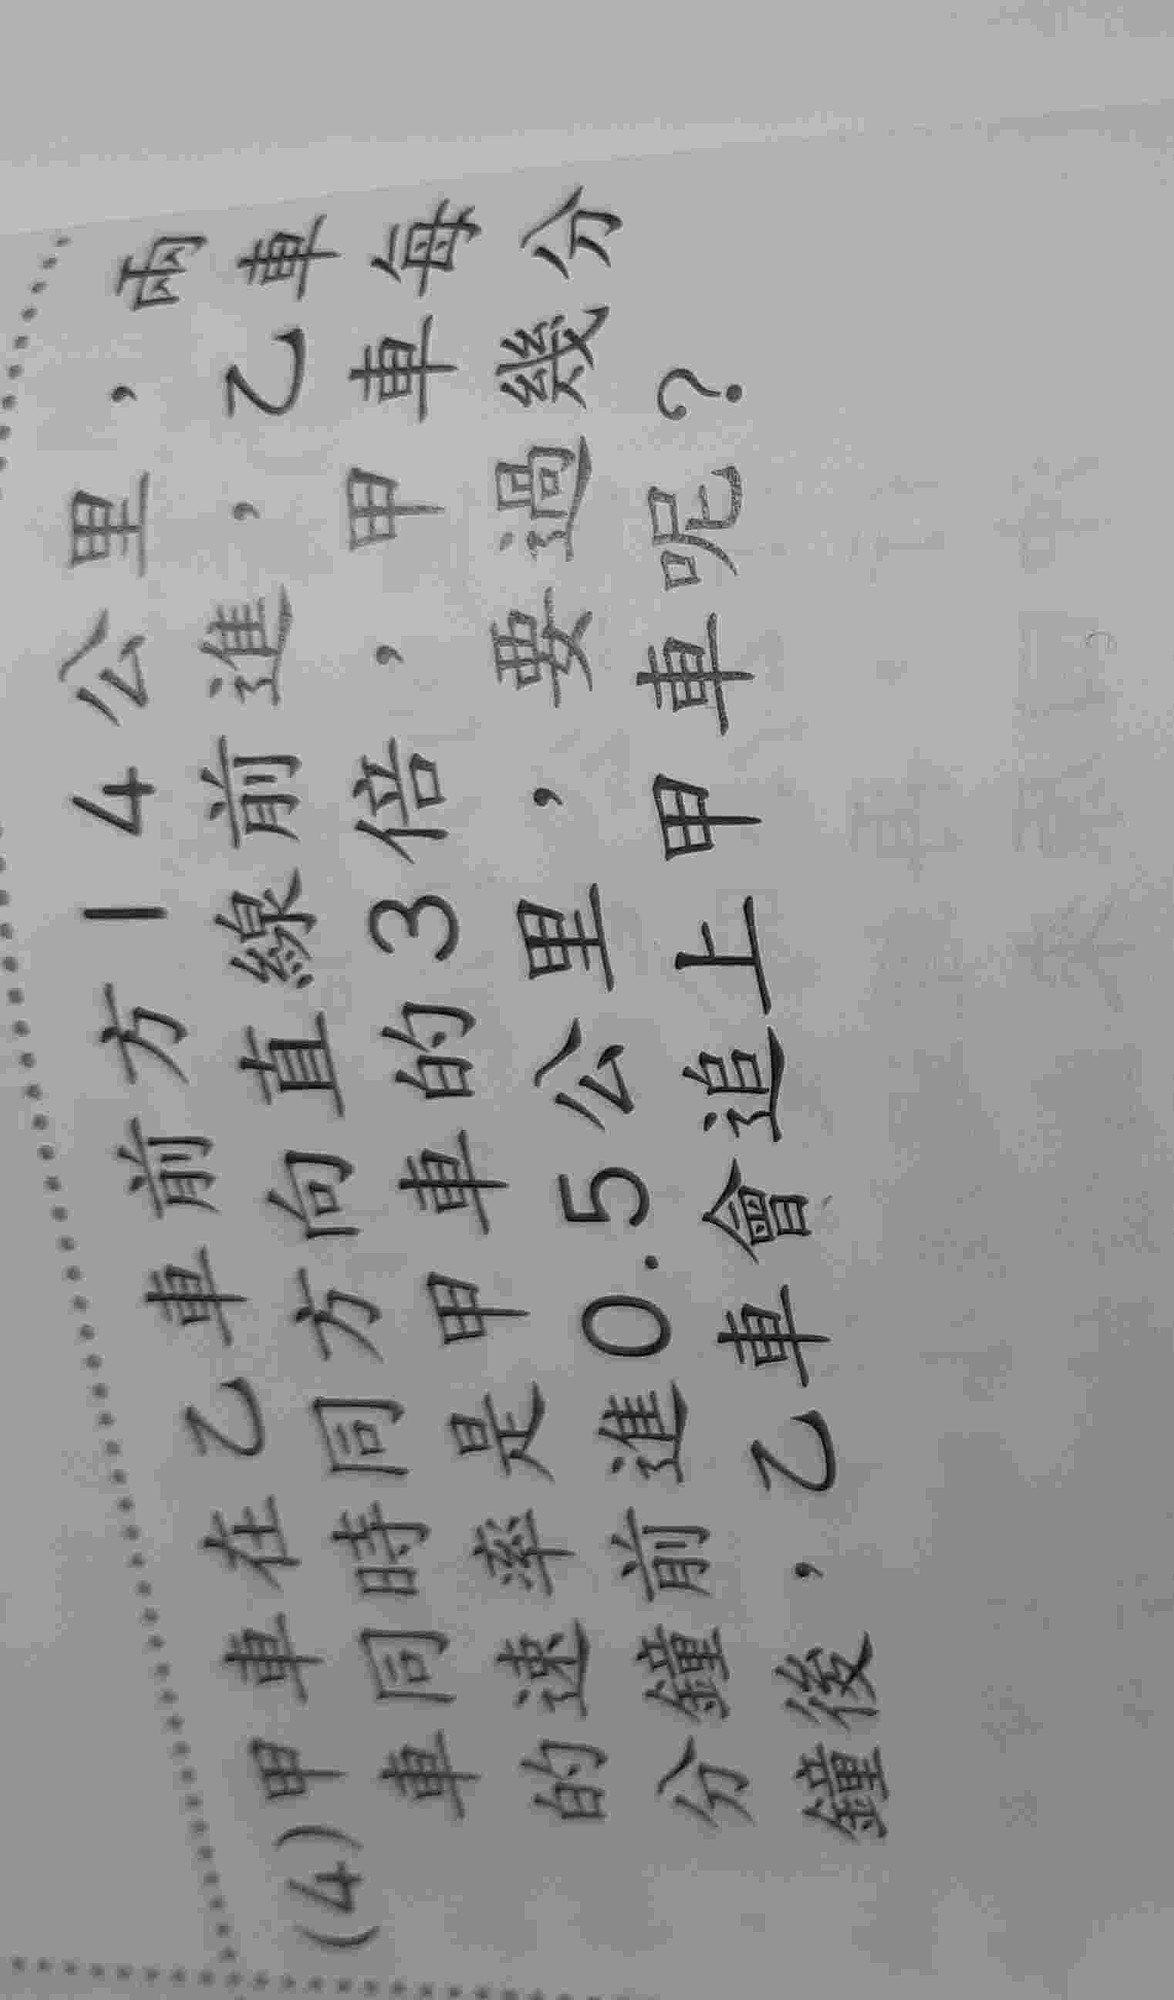 (4)甲車在乙車前方14公里，兩
車同時同方向直線前進，乙車
的速率是甲車的3倍，甲車每
分鐘前進0.5公里，要過幾分
鐘後，乙車會追上甲車呢？